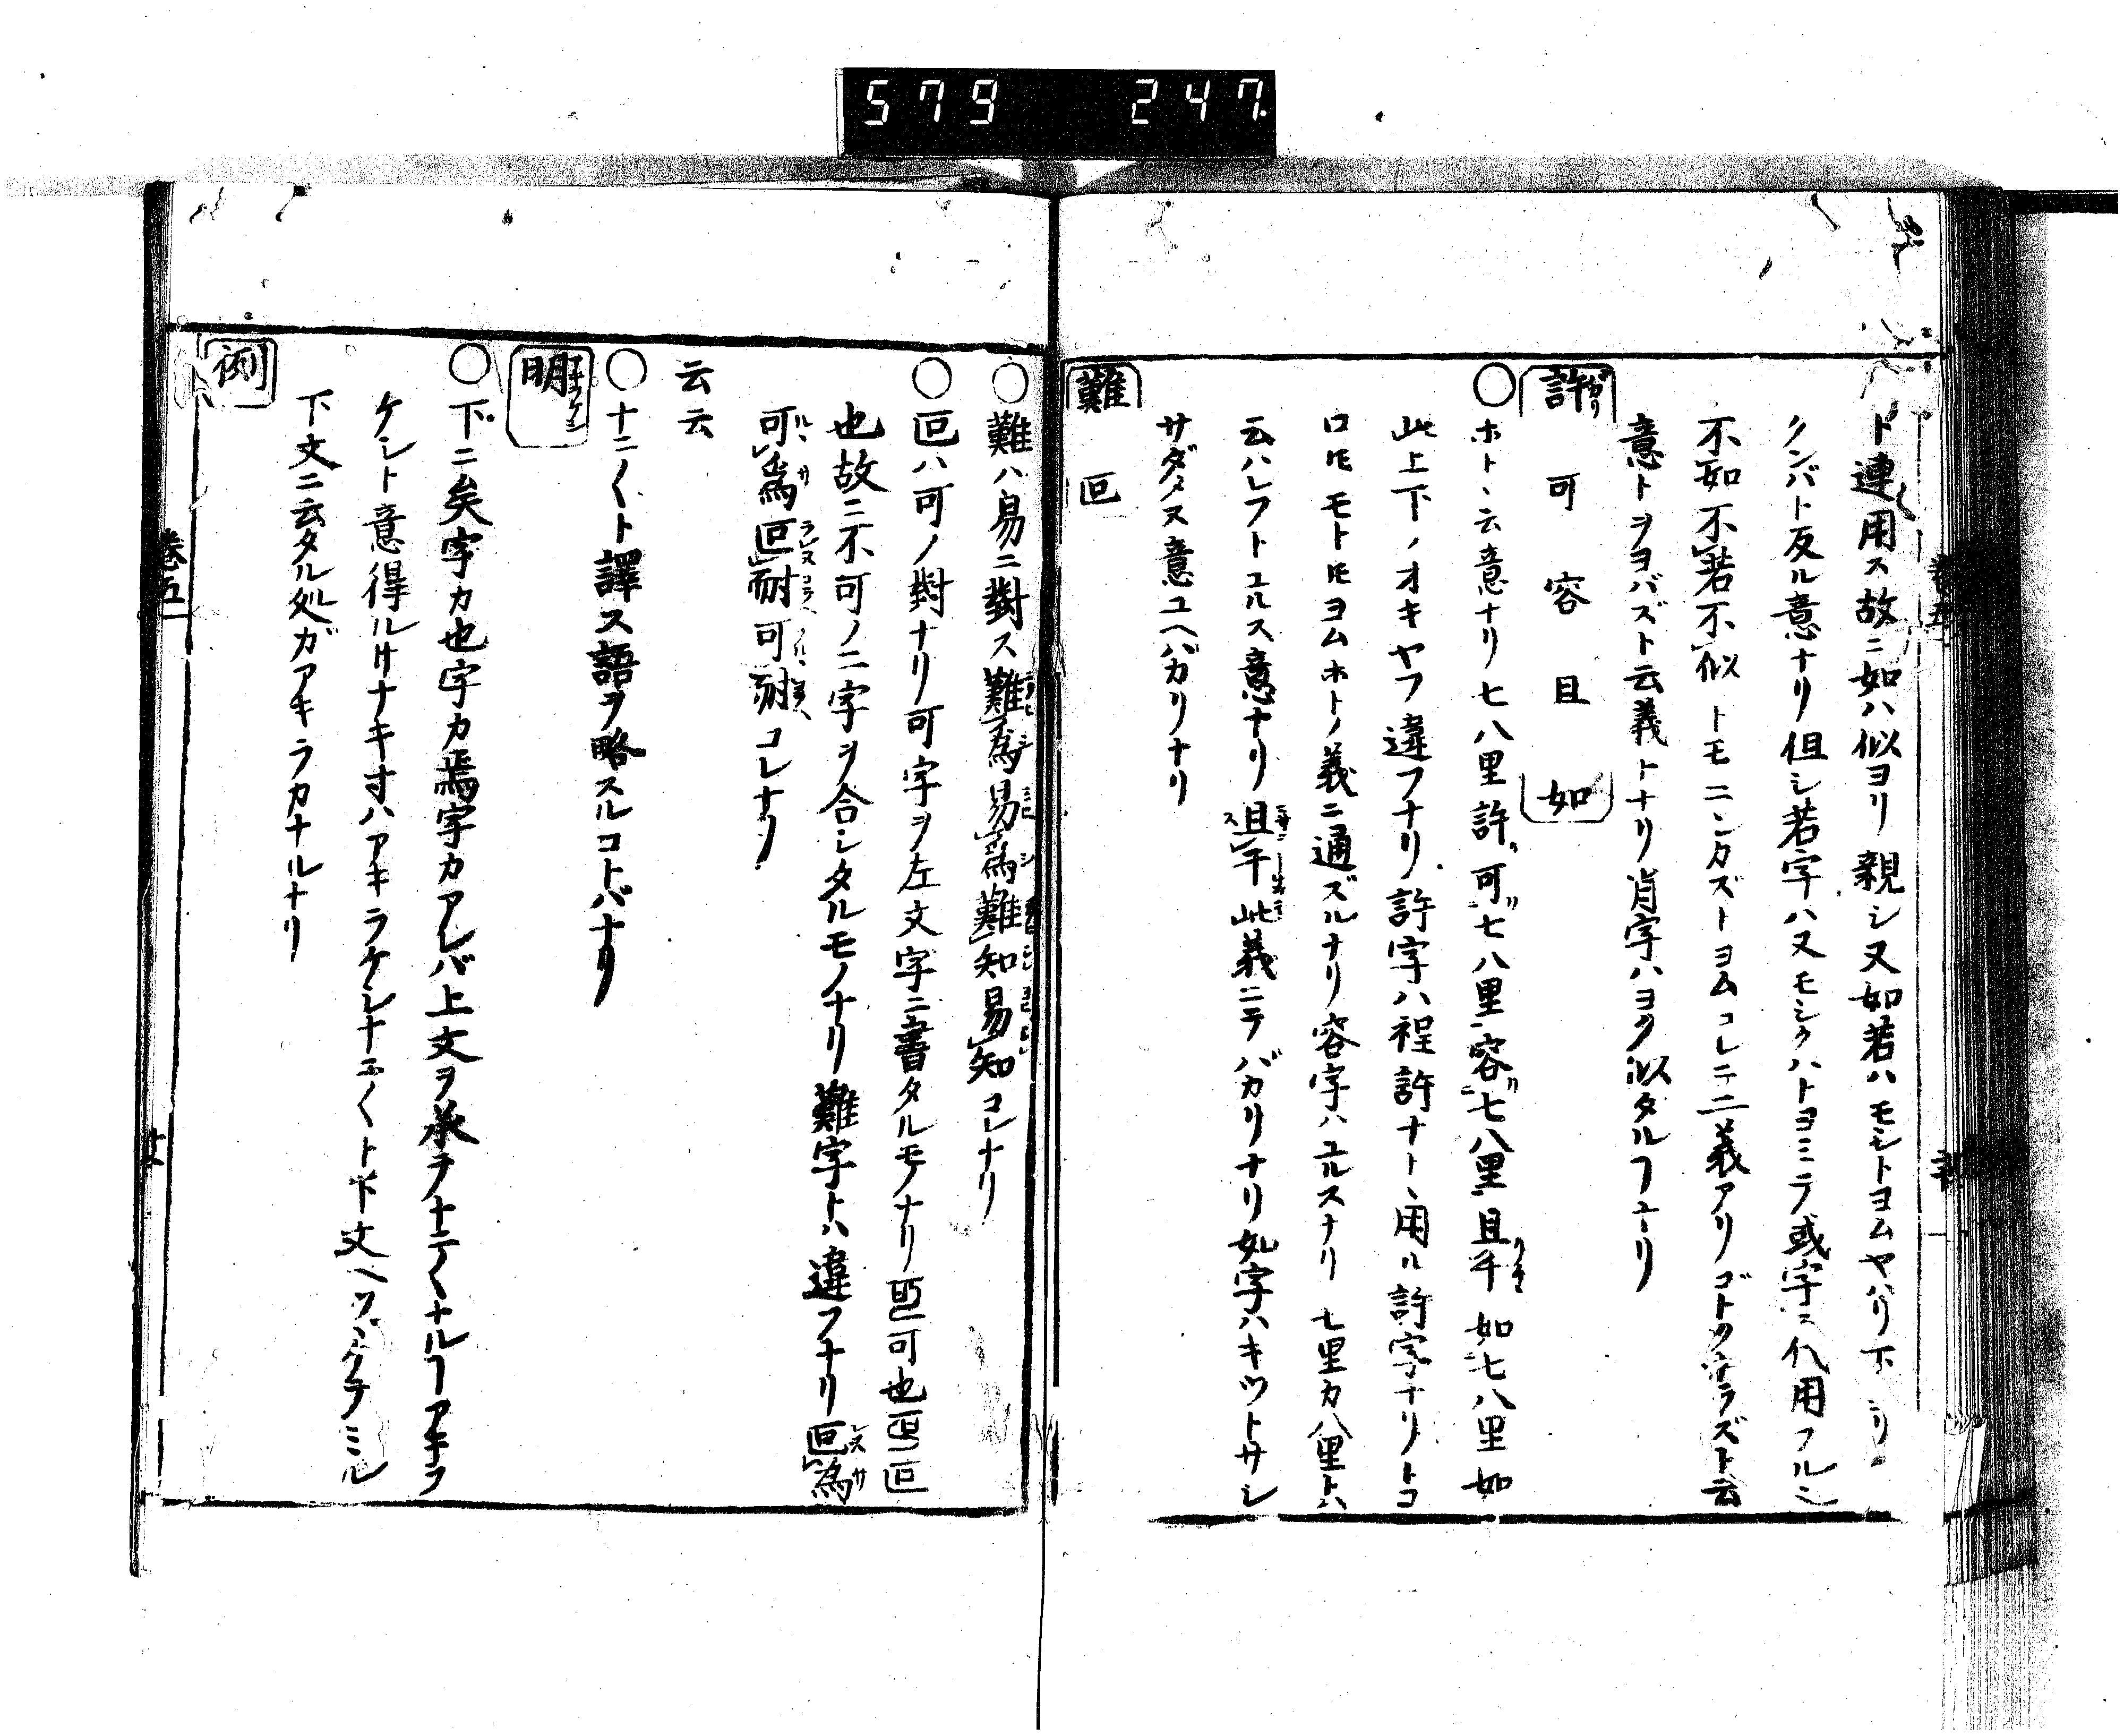 579 247
ト連用ス故ニ如ハ似ヨリ親シ又如若ハモシトヨムヤハリ下
クンバト反ル意ナリ但シ若字ハ又モシクハトヨミテ或字ニ代用フルニ
不如不若不似トモニシカズトヨムコレニ二義アリゴトクナラズト云
意トヲヨバズト云義トナリ肖字ハヨク似タルヿナリ
許 可 容 且 如
○ホトヽ云意ナリ七八里許可七八里容七八里且千如七八里如
此上下ノオキヤフ違フナリ許字ハ程許ナトヽ用ル許字ナリトコ
ロ𪜈モト𪜈ヨムホトノ義ニ通ズルナリ容字ハユルスナリ七里カ八里トハ
云ハレフトユルス意ナリ且千此義ニテバカリナリ如字ハキツトサシ
サダメヌ意ユヘバカリナリ
難 叵
○難ハ易ニ對ス難為易為難知易知コレナリ
○叵ハ可ノ對ナリ可字ヲ左文字ニ書タルモノナリ叵可也叵
也故ニ不可ノ二字ヲ合シタルモノナリ難字トハ違フナリ叵為
可為叵耐可耐コレナリ
云云
○ナニ〱ト譯ス語ヲ略スルコトバナリ
明
○下ニ矣字カ也字カ焉字カアレバ上文ヲ承テナニ〱ナルヿアキラ
ケシト意得ルサナキ寸ハアキラケシナニ〱ト下文ヘツヾケテミル
下文ニ云タル処ガアキラカナルナリ
例
巻五